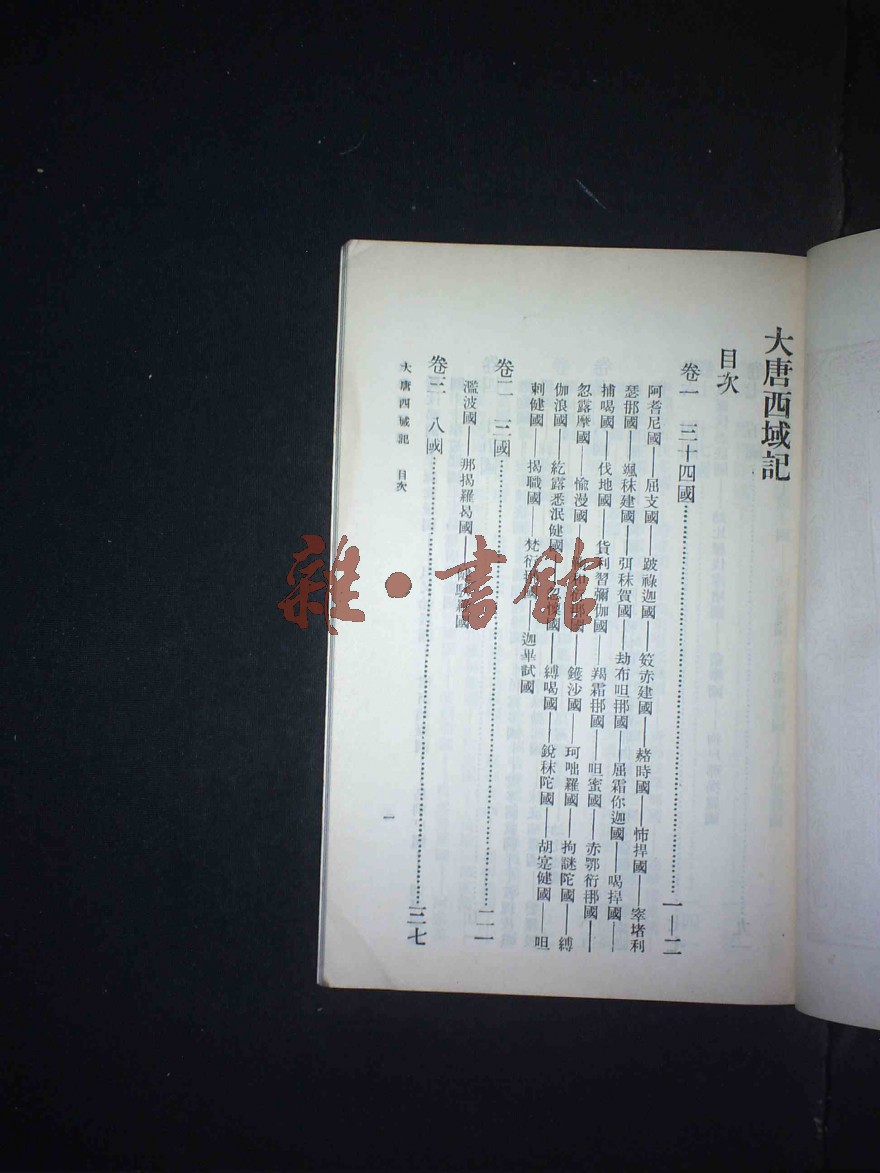 大唐西域記
目次
卷一 三十四國……一—二
阿耆尼國——屈支國——跋祿迦國——笯赤建國——赭時國——㤄捍國——窣堵利
瑟那國——颯秣建國——弭秣賀國——劫布呾那國——屈霜你迦國——喝捍國——
捕喝國——伐地國——貨利習彌伽國——羯霜那國——呾蜜國——赤鄂衍那國——
忽露摩國——愉漫國——鑊沙國——珂咄羅國——拘謎陀國——縛
伽浪國——紇露悉泯健國——縛喝國——銳秣陀國——胡寔健國——呾
剌健國——揭職國——梵衍國——迦畢試國
卷二 三國……二一
濫波國——那揭羅曷國——國
卷三 八或……三七
大唐西域記 目次
一
雜·書館